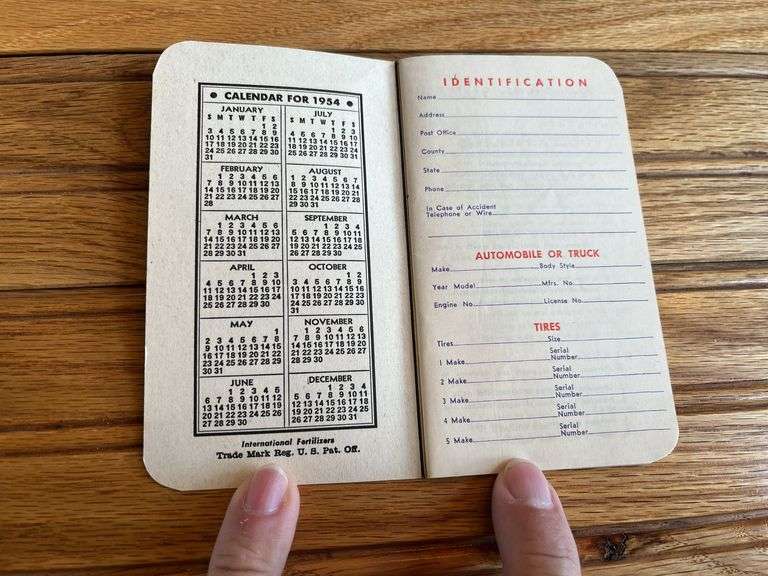 • CALENDAR FOR 1954 •
JANUARY
S M T W T F S
1 2
3 4 5 6 7 8 9
10 11 12 13 14 15 16
17 18 19 20 21 22 23
24 25 26 27 28 29 30
31
JULY
S M T W T F S
1 2 3
4 5 6 7 8 9 10
11 12 13 14 15 16 17
18 19 20 21 22 23 24
25 26 27 28 29 30 31
FEBRUARY
1 2 3 4 5 6
7 8 9 10 11 12 13
14 15 16 17 18 19 20
21 22 23 24 25 26 27
28
AUGUST
1 2 3 4 5 6 7
8 9 10 11 12 13 14
15 16 17 18 19 20 21
22 23 24 25 26 27 28
29 30 31
MARCH
1 2 3 4 5 6
7 8 9 10 11 12 13
14 15 16 17 18 19 20
21 22 23 24 25 26 27
28 29 30 31
SEPTEMBER
1 2 3 4
5 6 7 8 9 10 11
12 13 14 15 16 17 18
19 20 21 22 23 24 25
26 27 28 29 30
APRIL
1 2 3
4 5 6 7 8 9 10
11 12 13 14 15 16 17
18 19 20 21 22 23 24
25 26 27 28 29 30
OCTOBER
1 2
3 4 5 6 7 8 9
10 11 12 13 14 15 16
17 18 19 20 21 22 23
24 25 26 27 28 29 30
31
MAY
1
2 3 4 5 6 7 8
9 10 11 12 13 14 15
16 17 18 19 20 21 22
23 24 25 26 27 28 29
30 31
NOVEMBER
1 2 3 4 5 6
7 8 9 10 11 12 13
14 15 16 17 18 19 20
21 22 23 24 25 26 27
28 29 30
JUNE
1 2 3 4 5
6 7 8 9 10 11 12
13 14 15 16 17 18 19
20 21 22 23 24 25 26
27 28 29 30
DECEMBER
1 2 3 4
5 6 7 8 9 10 11
12 13 14 15 16 17 18
19 20 21 22 23 24 25
26 27 28 29 30 31
International Fertilizers
Trade Mark Reg. U. S. Pat. Off.
IDENTIFICATION
Name
Address
Post Office
County
State
Phone
In Case of Accident
Telephone or Wire
AUTOMOBILE OR TRUCK
Make Body Style
Year Model Mfrs. No.
Engine No. License No.
TIRES
Tires Size
1 Make Serial Number
2 Make Serial Number
3 Make Serial Number
4 Make Serial Number
5 Make Serial Number